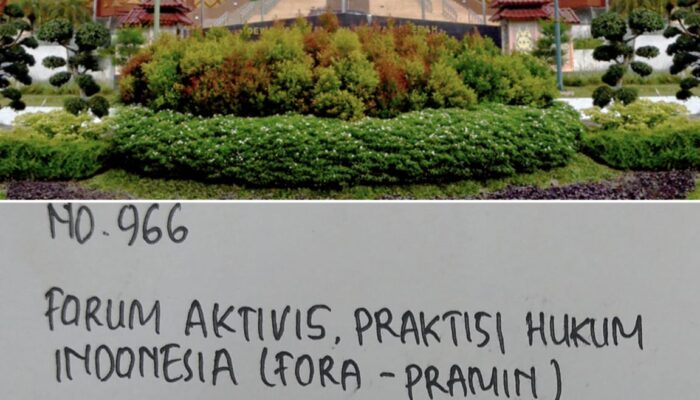 NO. 966
FORUM AKTIVIS, PRAKTISI HUKUM
INDONESIA (FORA - PRAMIN)